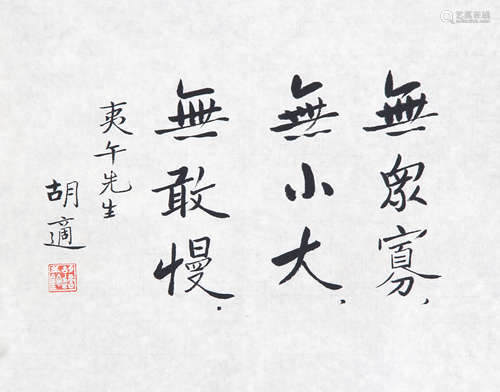 無眾寡，
無小大，
無敢慢．
夷午先生
胡適